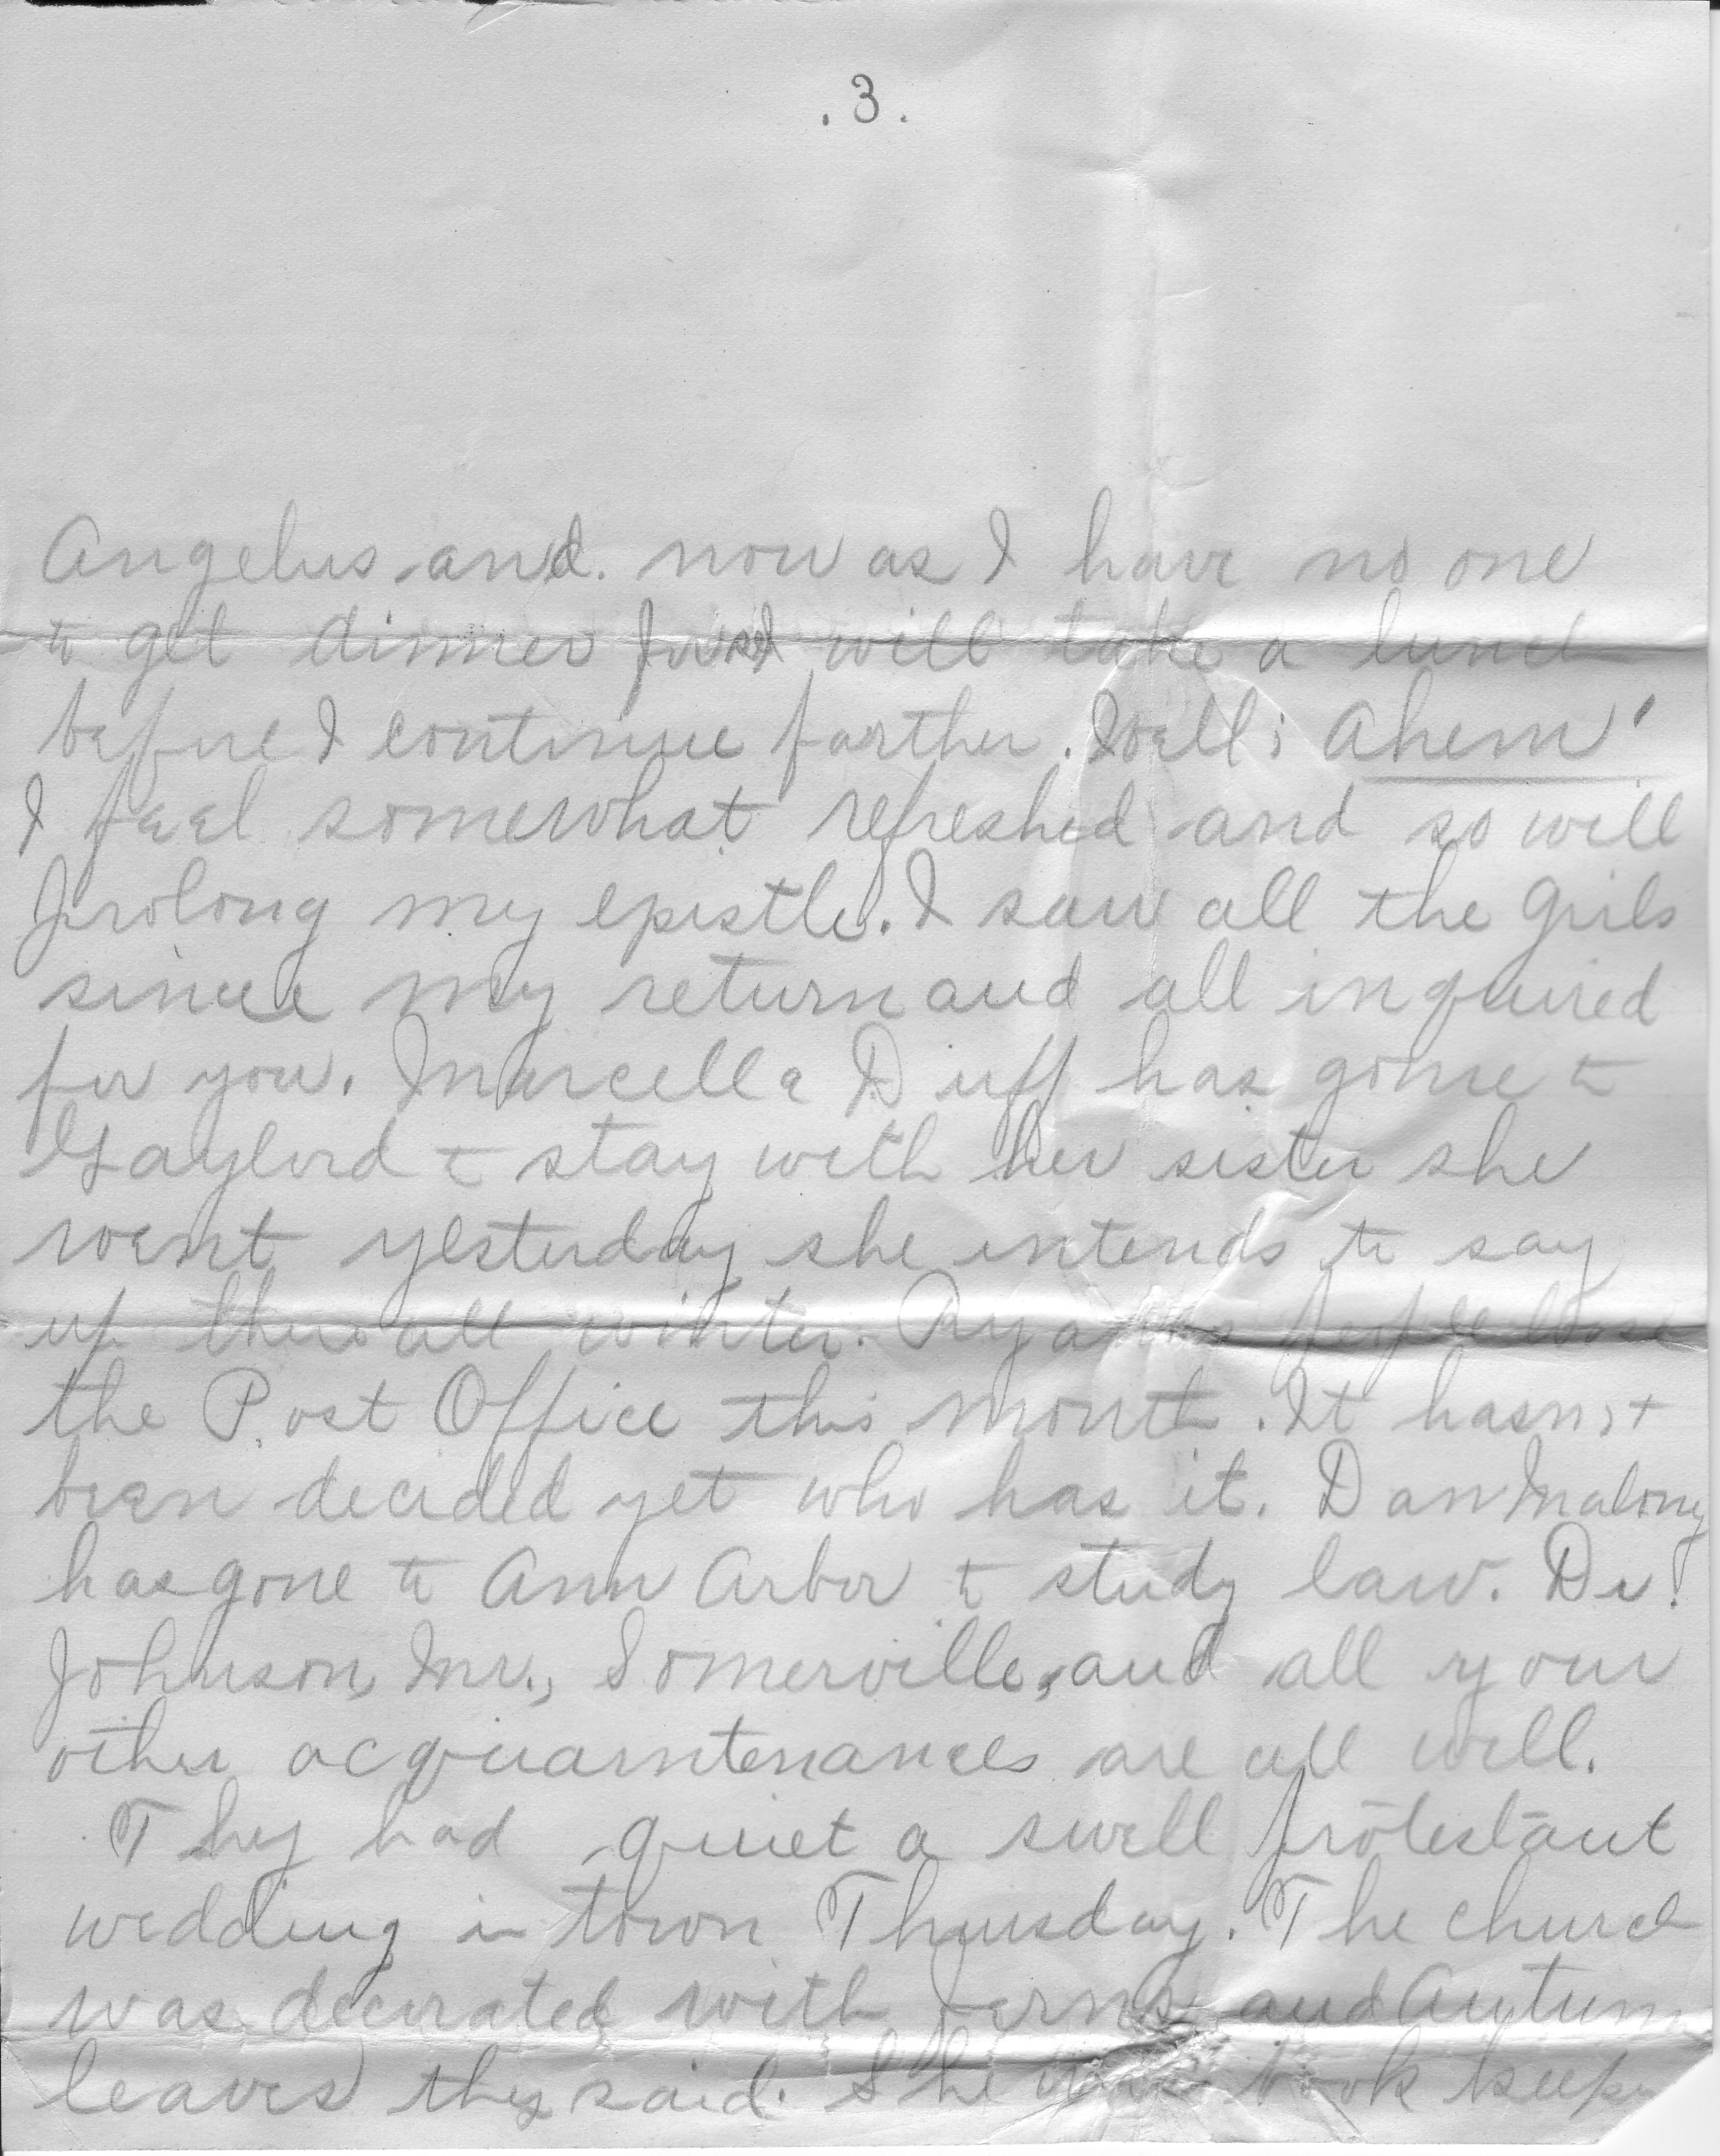 . 3 .
Angelus and. now as I have no one
to get dinner for I will take a lunch
before I continue farther. Well; Ahem'
I feel somewhat refreshed and so will
prolong my epistle. I saw all the girls
since my return and all inquired
for you. Marcella Duff has gone to
Gaylord to stay with her sister she
went yesterday she intends to say
up there all winter. Ryans people loose
the Post Office this month. It hasn't
been decided yet who has it. Dan Malony
has gone to Ann Arbor to study law. Dr.
Johnson, Mr., Somerville, and all your
other acquaintenances are all well.
They had quiet a swell protestant
wedding in town Thursday. The church
was decorated with ferns and Autum
leaves they said. She was book keeper